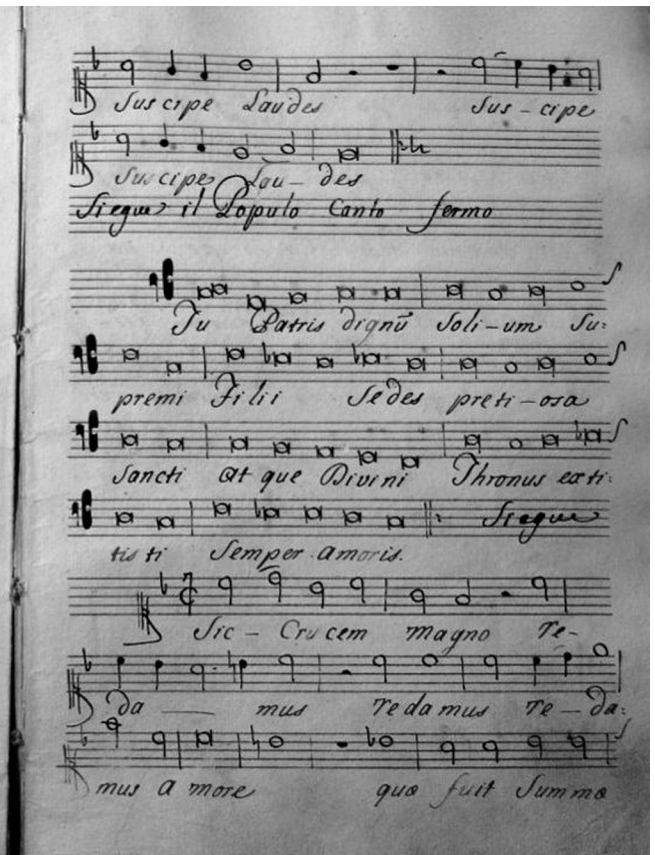 Suscipe Laudes Sus-cipe
Suscipe Lau-des
Siegue il Populo Canto fermo
Tu Patris dignū Soli-um Su:
premi Filii Sedes preti-osa
Sancti Atque Divini Thronus exti:
tisti Semper amoris. Siegue
Sic-Crucem magno re-
da mus redamus re-da:
mus a more quo fuit Summo